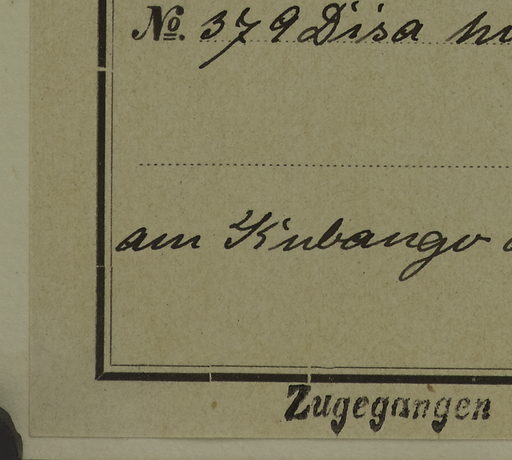 No. 379 Disa
am Kubango
Zugegangen